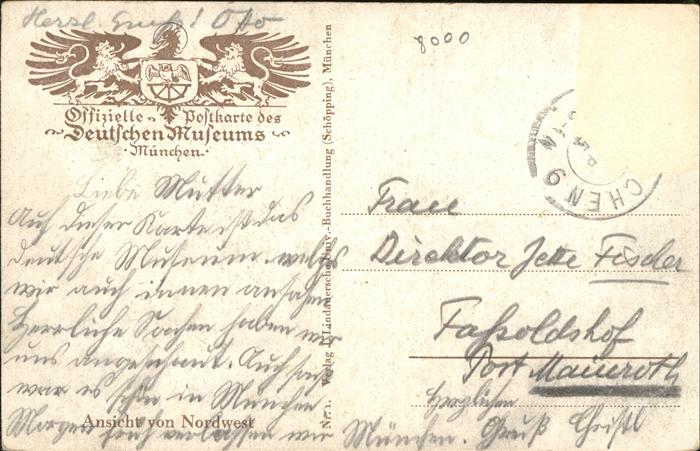 Herzl. Gruß! Otto
8000
Offizielle Postkarte des
Deutschen Museums
München
Liebe Mutter
Auf dieser Karte ist das
deutsche Museum welches
wir auch innen ansahen
Herrliche Sachen haben wir
uns angeschaut. Auch sonst
war es schön in München
Morgen früh verlassen wir München.
Herzlichen
Gruß Christl
Ansicht von Nordwest
Nr. 1. Verlag J. Lindauersche Univ.-Buchhandlung (Schöpping), München
CHEN 9
Frau
Direktor Jette Fischer
Faßoldshof
Post Mainroth